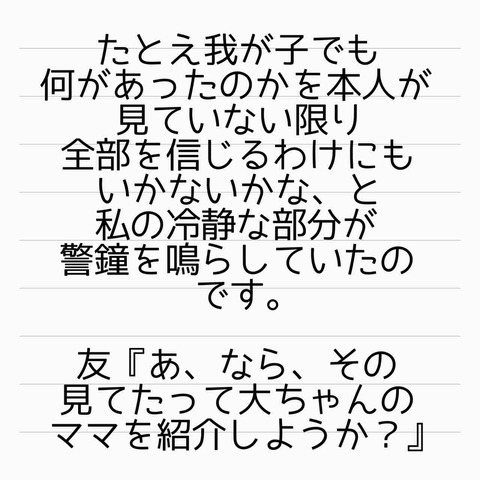 たとえ我が子でも
何があったのかを本人が
見ていない限り
全部を信じるわけにも
いかないかな、と
私の冷静な部分が
警鐘を鳴らしていたの
です。
友『あ、なら、その
見てたって大ちゃんの
ママを紹介しようか？』